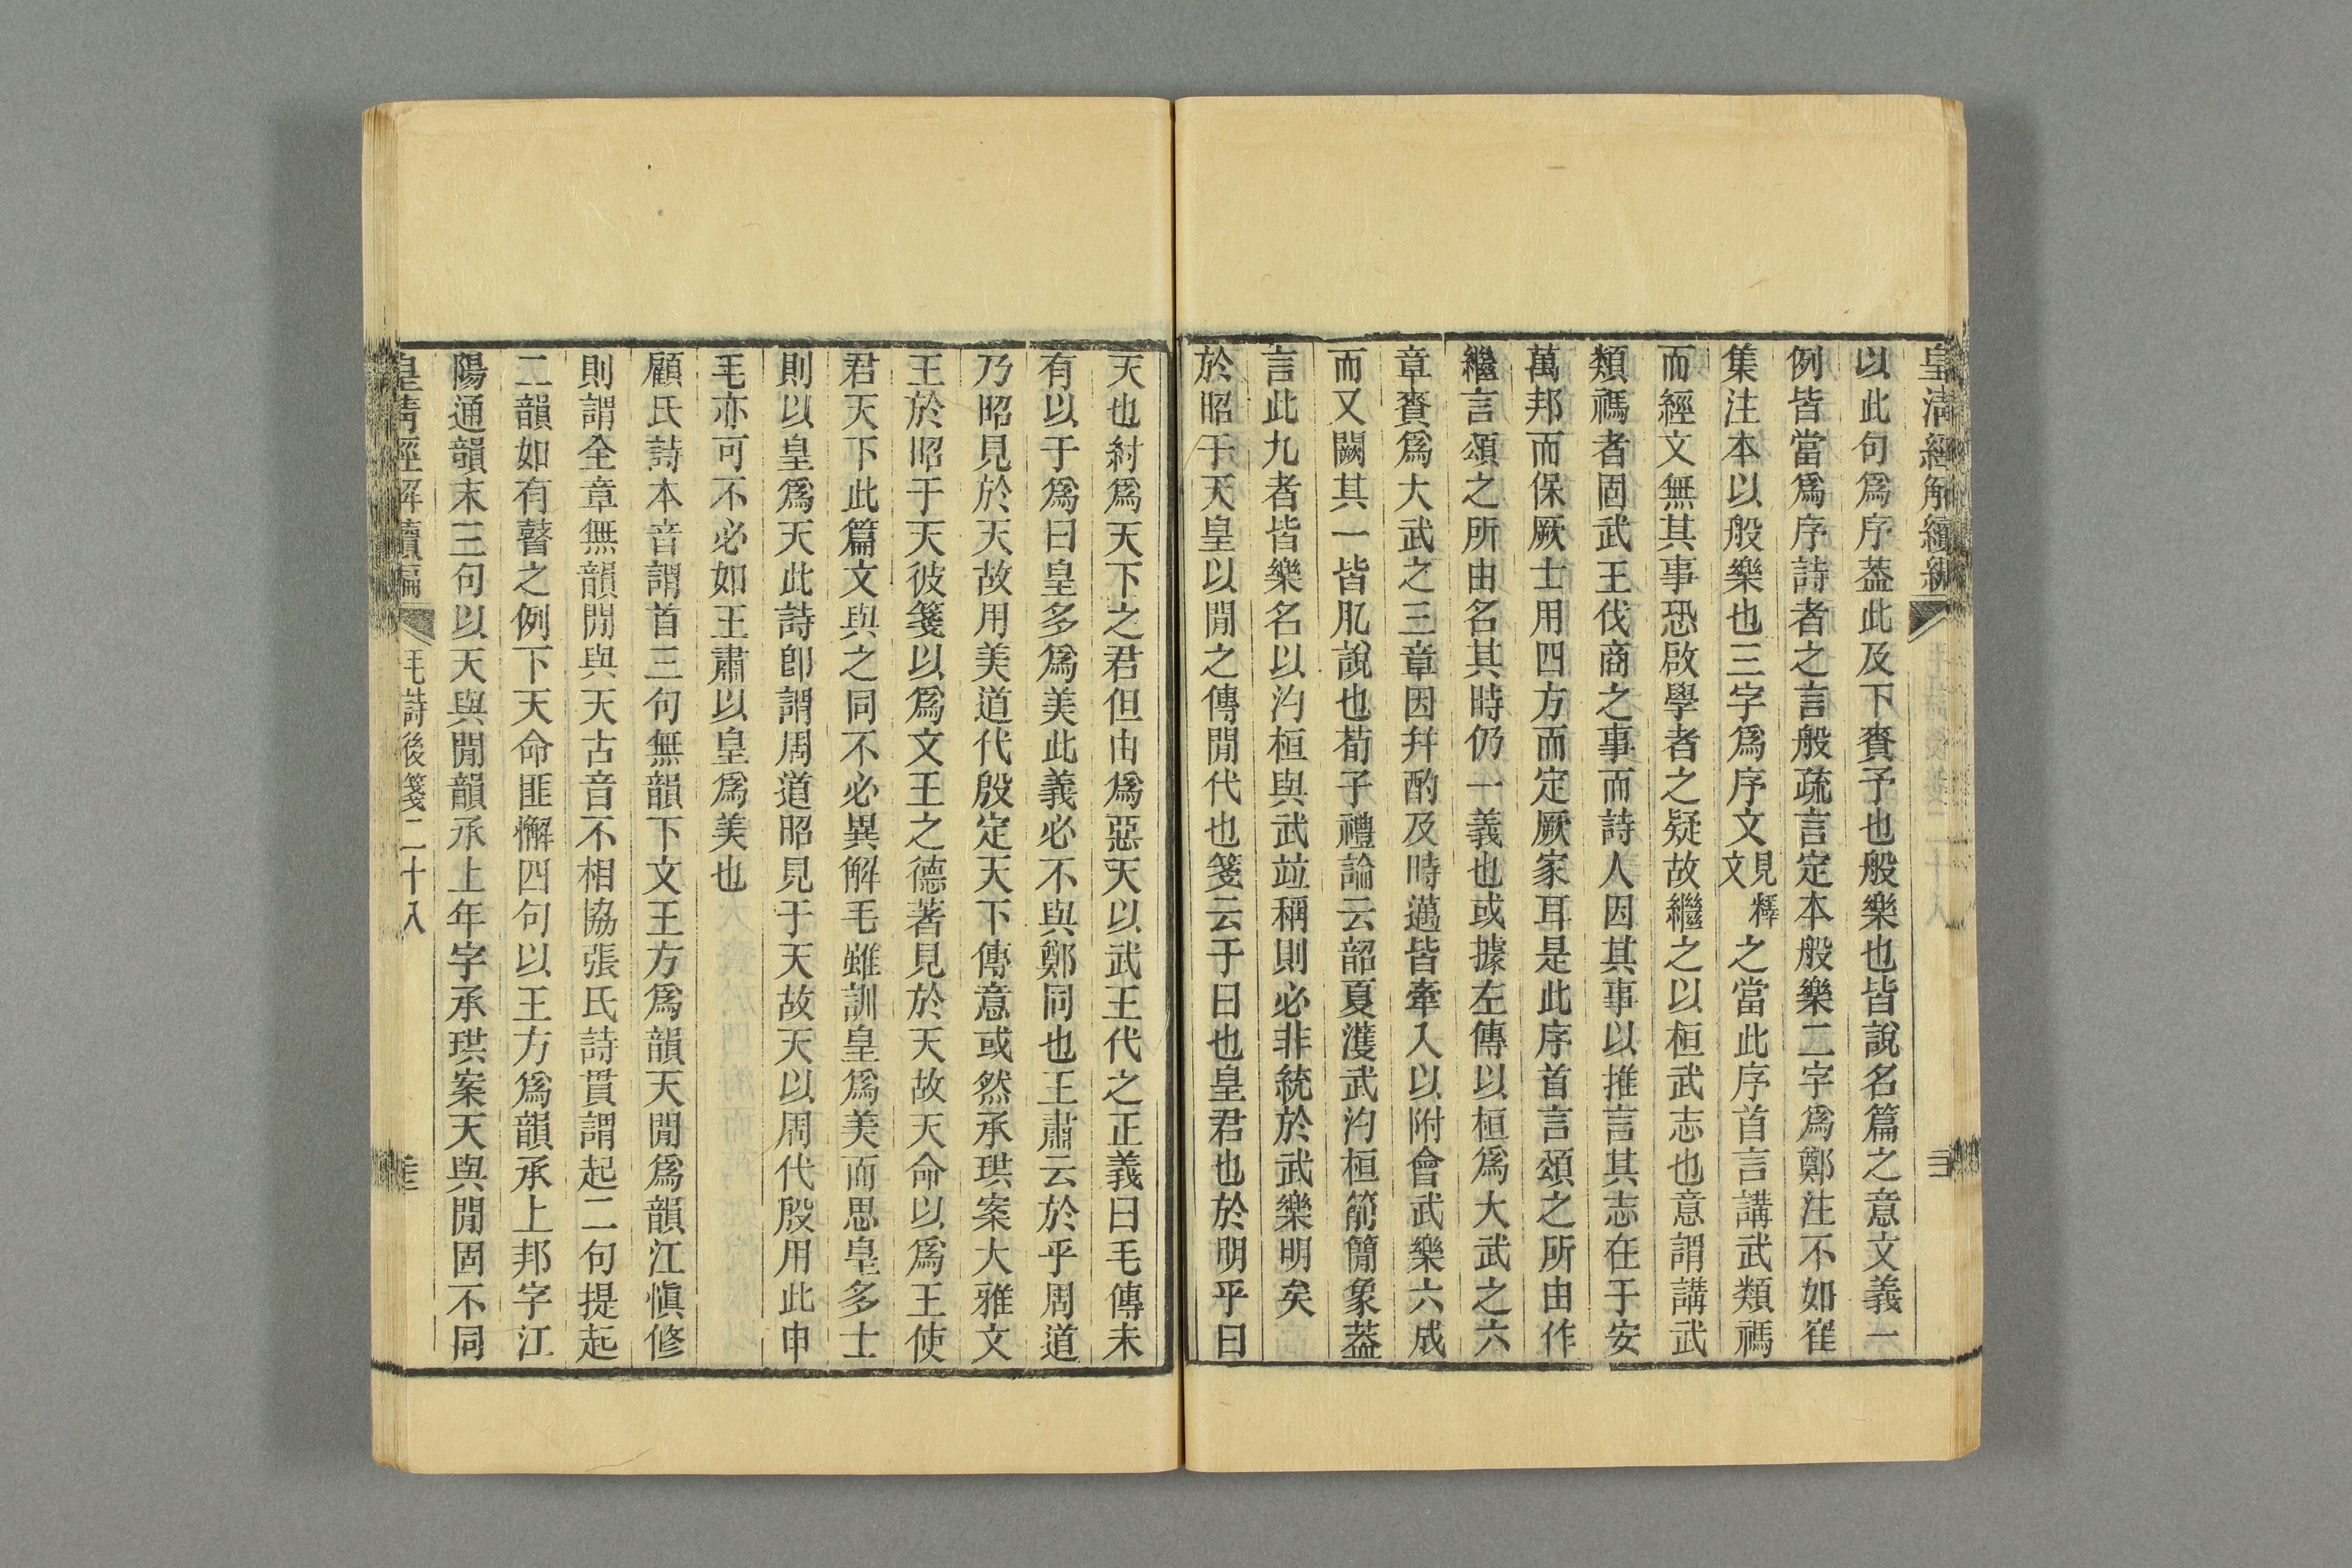 皇清經解續編
以此句爲序葢此及下賚予也般樂也皆說名篇之意文義一
例皆當爲序詩者之言般疏言定本般樂二字爲鄭注不如崔
集注本以般樂也三字爲序文見釋文之當此序首言講武類禡
而經文無其事恐啟學者之疑故繼之以桓武志也意謂講武
類禡者固武王伐商之事而詩人因其事以推言其志在于安
萬邦而保厥士用四方而定厥家耳是此序首言頌之所由作
繼言頌之所由名其時仍一義也或據左傳以桓爲大武之六
章賚爲大武之三章因幷酌及時邁皆牽入以附會武樂六成
而又闕其一皆肊說也荀子禮論云韶夏濩武汋桓箾簡象葢
言此九者皆樂名以汋桓與武竝稱則必非統於武樂明矣
於昭于天皇以閒之傳閒代也箋云于曰也皇君也於明乎曰
天也紂爲天下之君但由爲惡天以武王代之正義曰毛傳未
有以于爲曰皇多爲美此義必不與鄭同也王肅云於乎周道
乃昭見於天故用美道代殷定天下傳意或然承珙案大雅文
王於昭于天彼箋以爲文王之德著見於天故天命以爲王使
君天下此篇文與之同不必異解毛雖訓皇爲美而思皇多士
則以皇爲天此詩卽謂周道昭見于天故天以周代殷用此申
毛亦可不必如王肅以皇爲美也
顧氏詩本音謂首三句無韻下文王方爲韻天閒爲韻江愼修
則謂全章無韻閒與天古音不相協張氏詩貫謂起二句提起
二韻如有瞽之例下天命匪懈四句以王方爲韻承上邦字江
陽通韻末三句以天與閒韻承上年字承珙案天與閒固不同
皇清經解續編 毛詩後箋二十八